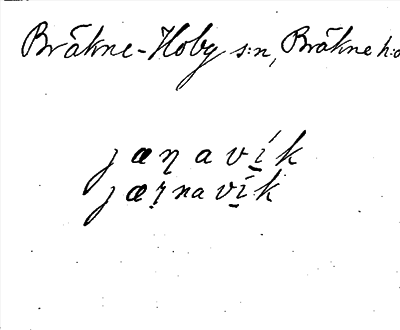 Bräkne-Hoby s:n, Bräkne h:d
jæṇavi̲k
jæṛnavi̲k